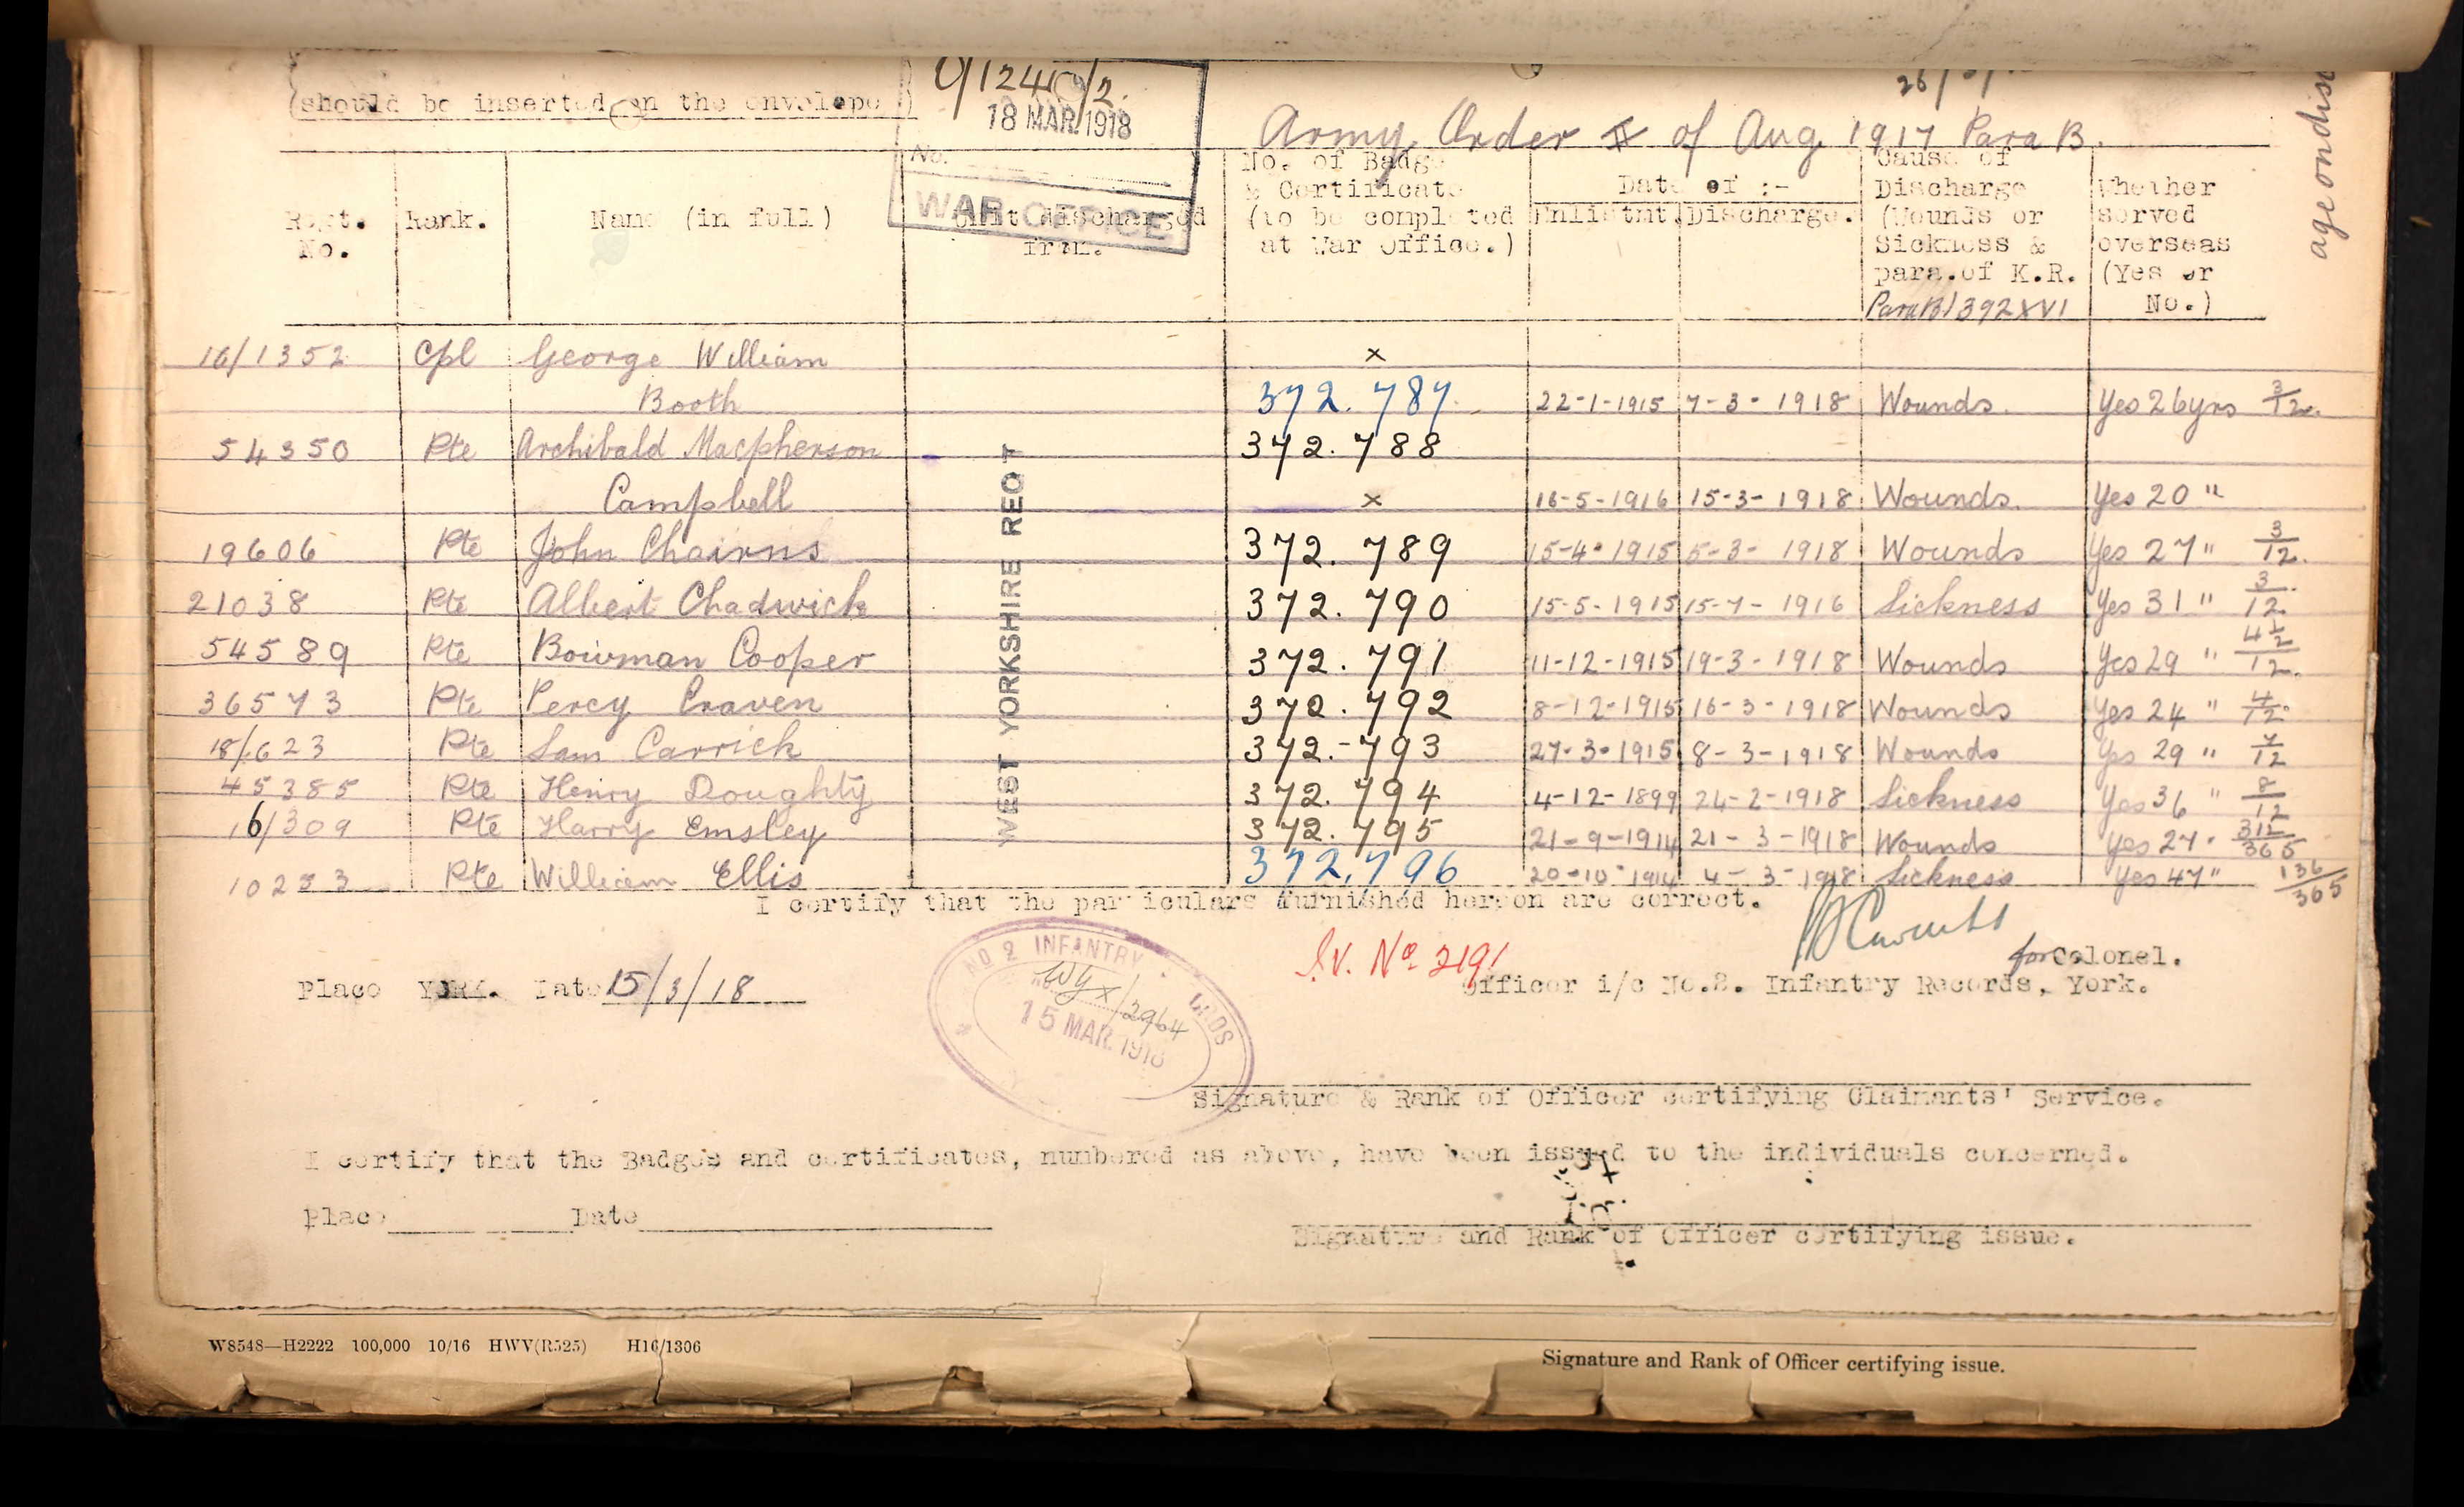 (should be inserted on the envelope)
18 MAR 1918
No.
WAR OFFICE
Army Order II of Aug 1917 Para B.
age on disc
Regt. No. Rank. Name (in full) Unit discharged from. No. of Badge & Certificate (to be completed at War Office.) Date of :- Enlistmt. Discharge. Cause of Discharge (Wounds or Sickness & para. of K.R. Para B) 392 XVI Whether served overseas (Yes or No.)
WEST YORKSHIRE REGT
16/1352 Cpl George William x
Booth 372.787 22-1-1915 7-3-1918 Wounds. Yes 26yrs 3/12.
54350 Pte Archibald Macpherson 372.788
Campbell x 16-5-1916 15-3-1918 Wounds. Yes 20 "
19606 Pte John Chairns 372.789 15-4-1915 5-3-1918 Wounds Yes 27 " 3/12.
21038 Pte Albert Chadwick 372.790 15-5-1915 15-7-1916 Sickness Yes 31 " 3/12.
54589 Pte Bowman Cooper 372.791 11-12-1915 19-3-1918 Wounds Yes 29 " 4½/12.
36573 Pte Percy Craven 372.792 8-12-1915 16-3-1918 Wounds Yes 24 " 4/12.
18/623 Pte Sam Carrick 372.-793 27-3-1915 8-3-1918 Wounds Yes 29 " 7/12
45385 Pte Henry Doughty 372.794 4-12-1899 24-2-1918 Sickness Yes 36 " 8/12
16/309 Pte Harry Emsley 372.795 21-9-1914 21-3-1918 Wounds Yes 27 " 312/365
10233 Pte William Ellis 372.796 20-10-1914 4-3-1918 Sickness Yes 47 " 136/365
I certify that the particulars furnished hereon are correct.
Iv. No 2191
for Colonel.
Place YORK. Date 15/3/18
Officer i/c No.2. Infantry Records, York.
NO 2 INFANTRY
WYX/2964
15 MAR. 1918
Signature & Rank of Officer certifying Claimants' Service.
I certify that the Badges and certificates, numbered as above, have been issued to the individuals concerned.
Place Date
Signature and Rank of Officer certifying issue.
W8548—H2222 100,000 10/16 HWV(R525) H16/1306
Signature and Rank of Officer certifying issue.